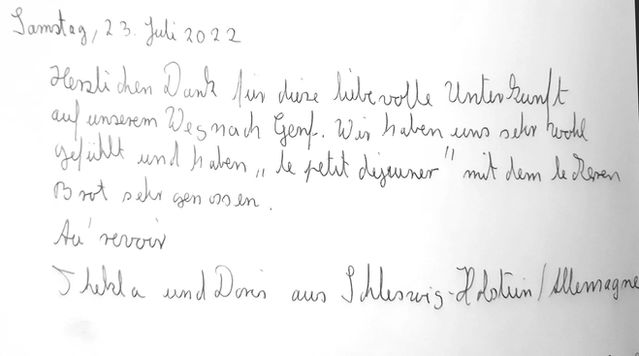 Samstag, 23. Juli 2022
Herzlichen Dank für diese liebevolle Unterkunft
auf unserem Weg nach Genf. Wir haben uns sehr wohl
gefühlt und haben „le petit dijeuner" mit dem leckeren
Brot sehr genossen.
Au' revoir
Thekla und Doris aus Schleswig-Holstein/Allemagne